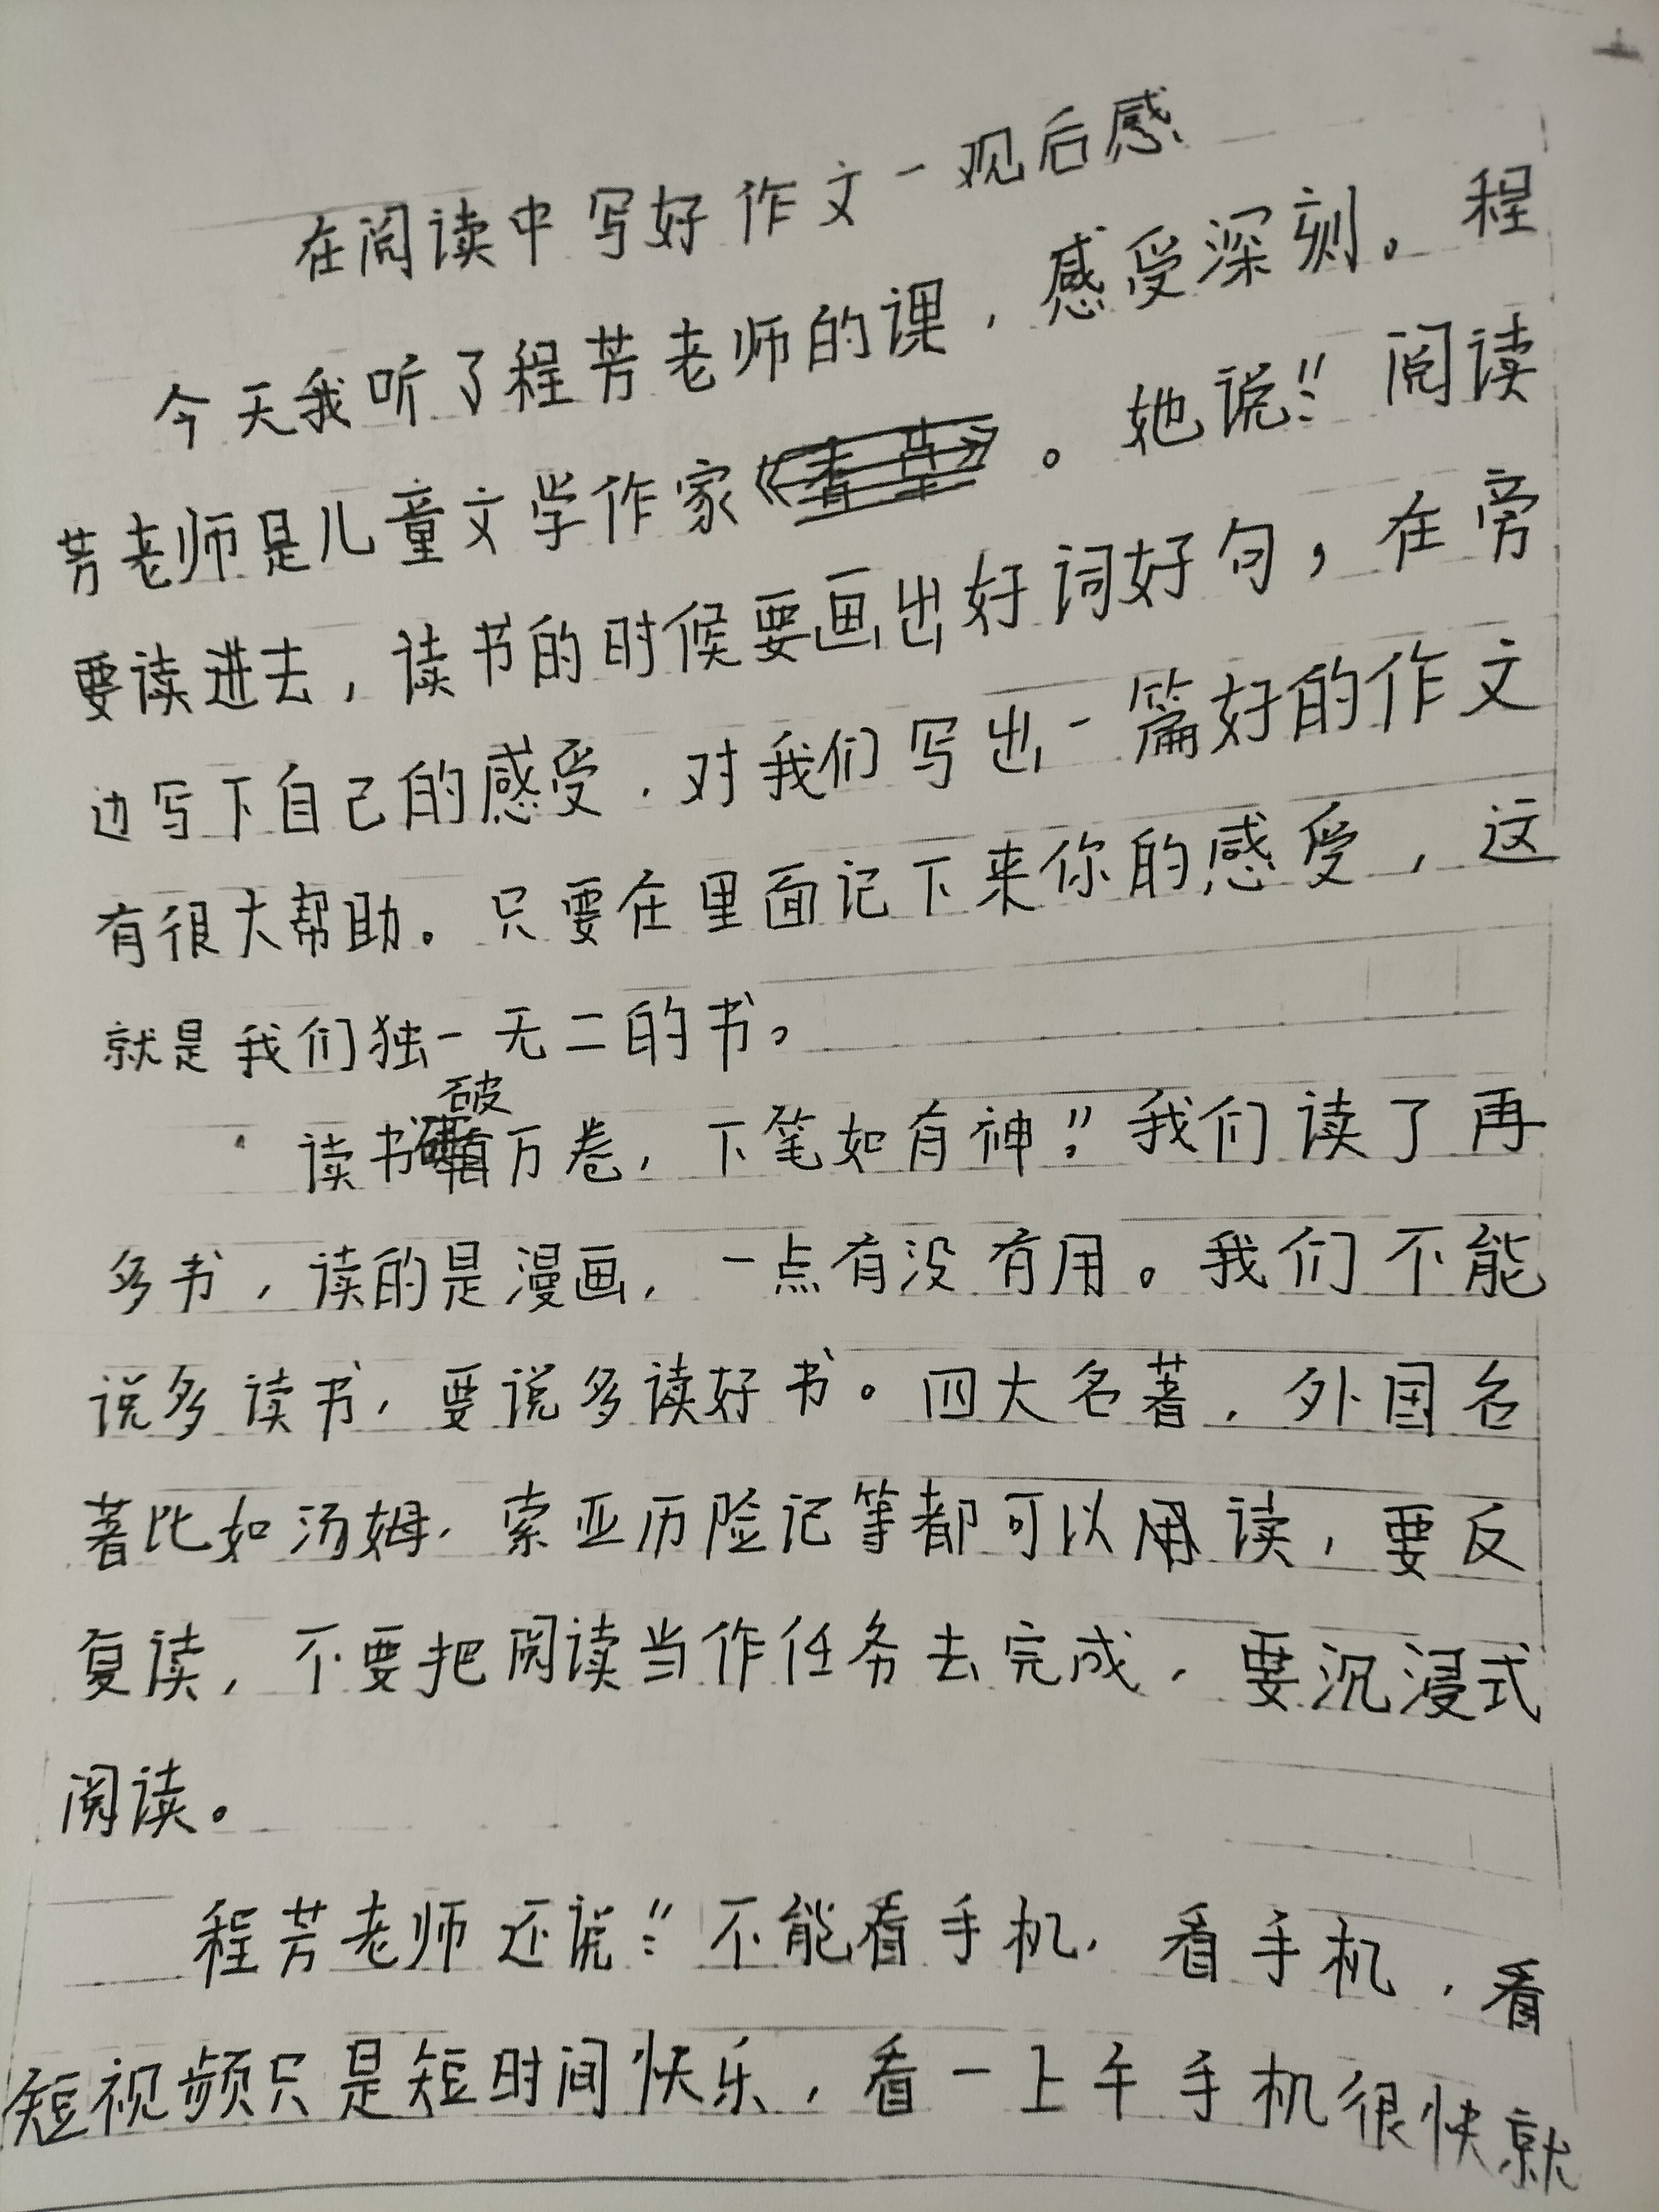 在阅读中写好作文一观后感
今天我听了程芳老师的课，感受深刻。程
芳老师是儿童文学作家。她说：“阅读
要读进去，读书的时候要画出好词好句，在旁
边写下自己的感受，对我们写出一篇好的作文
有很大帮助。只要在里面记下来你的感受，这
就是我们独一无二的书。
“读书破万卷，下笔如有神”。我们读了再
多书，读的是漫画，一点有没有用。我们不能
说多读书，要说多读好书。四大名著，外国名
著比如汤姆·索亚历险记等都可以用读，要反
复读，不要把阅读当作任务去完成，要沉浸式
阅读。
程芳老师还说：“不能看手机，看手机，看
短视频只是短时间快乐，看一上午手机很快就